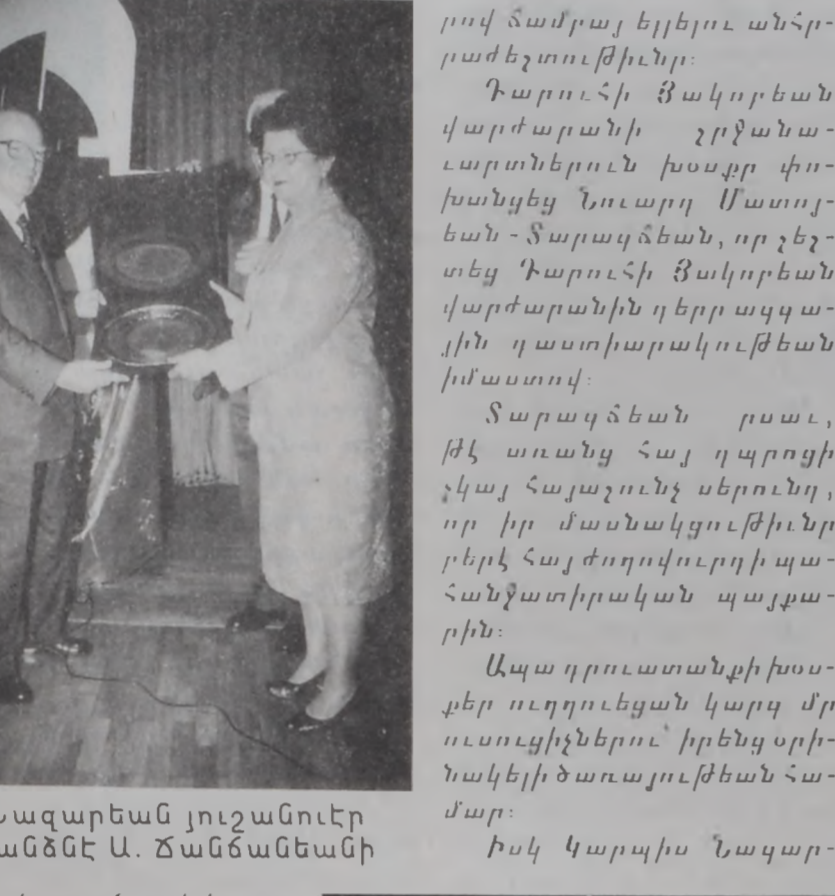 րով ճամբայ ելլելու անհր-
րաժեշտութիւնը։
Դարուհի Յակոբեան
վարժարանի շրջանա-
ւարտներուն խօսքը փո-
խանցեց Նուարդ Մատոյ-
եան - Տարագճեան, որ շեշ-
տեց Դարուհի Յակոբեան
վարժարանին դերը ազգա-
յին դաստիարակութեան
իմաստով։
Տարագճեան ըսաւ,
թէ առանց հայ դպրոցի
չկայ հայաշունչ սերունդ,
որ իր մասնակցութիւնը
բերէ հայ ժողովուրդի պա-
հանջատիրական պայքա-
րին։
Ապա դրուատանքի խօս-
քեր ուղղուեցան կարգ մը
ուսուցիչներու՝ իրենց օրի-
նակելի ծառայութեան հա-
մար։
Իսկ Կարպիս Նազար-
Նազարեան յուշանուէր
անձնէ Ա. Ճանճանեանի